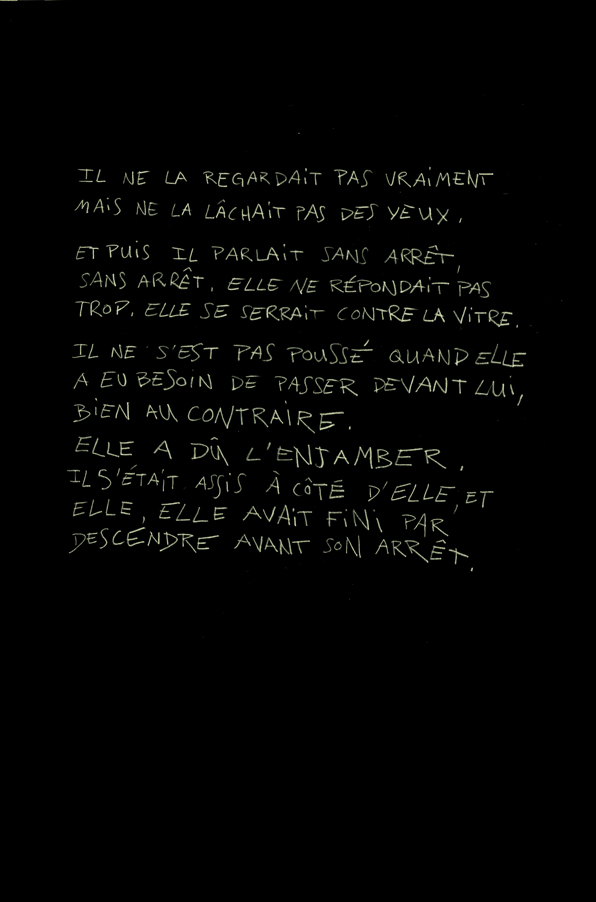 IL NE LA REGARDAIT PAS VRAIMENT
MAIS NE LA LÂCHAIT PAS DES YEUX.
ET PUIS IL PARLAIT SANS ARRÊT,
SANS ARRÊT. ELLE NE RÉPONDAIT PAS
TROP. ELLE SE SERRAIT CONTRE LA VITRE.
IL NE S'EST PAS POUSSÉ QUAND ELLE
A EU BESOIN DE PASSER DEVANT LUI,
BIEN AU CONTRAIRE.
ELLE A DÛ L'ENJAMBER.
IL S'ÉTAIT ASSIS À CÔTÉ D'ELLE, ET
ELLE, ELLE AVAIT FINI PAR
DESCENDRE AVANT SON ARRÊT.